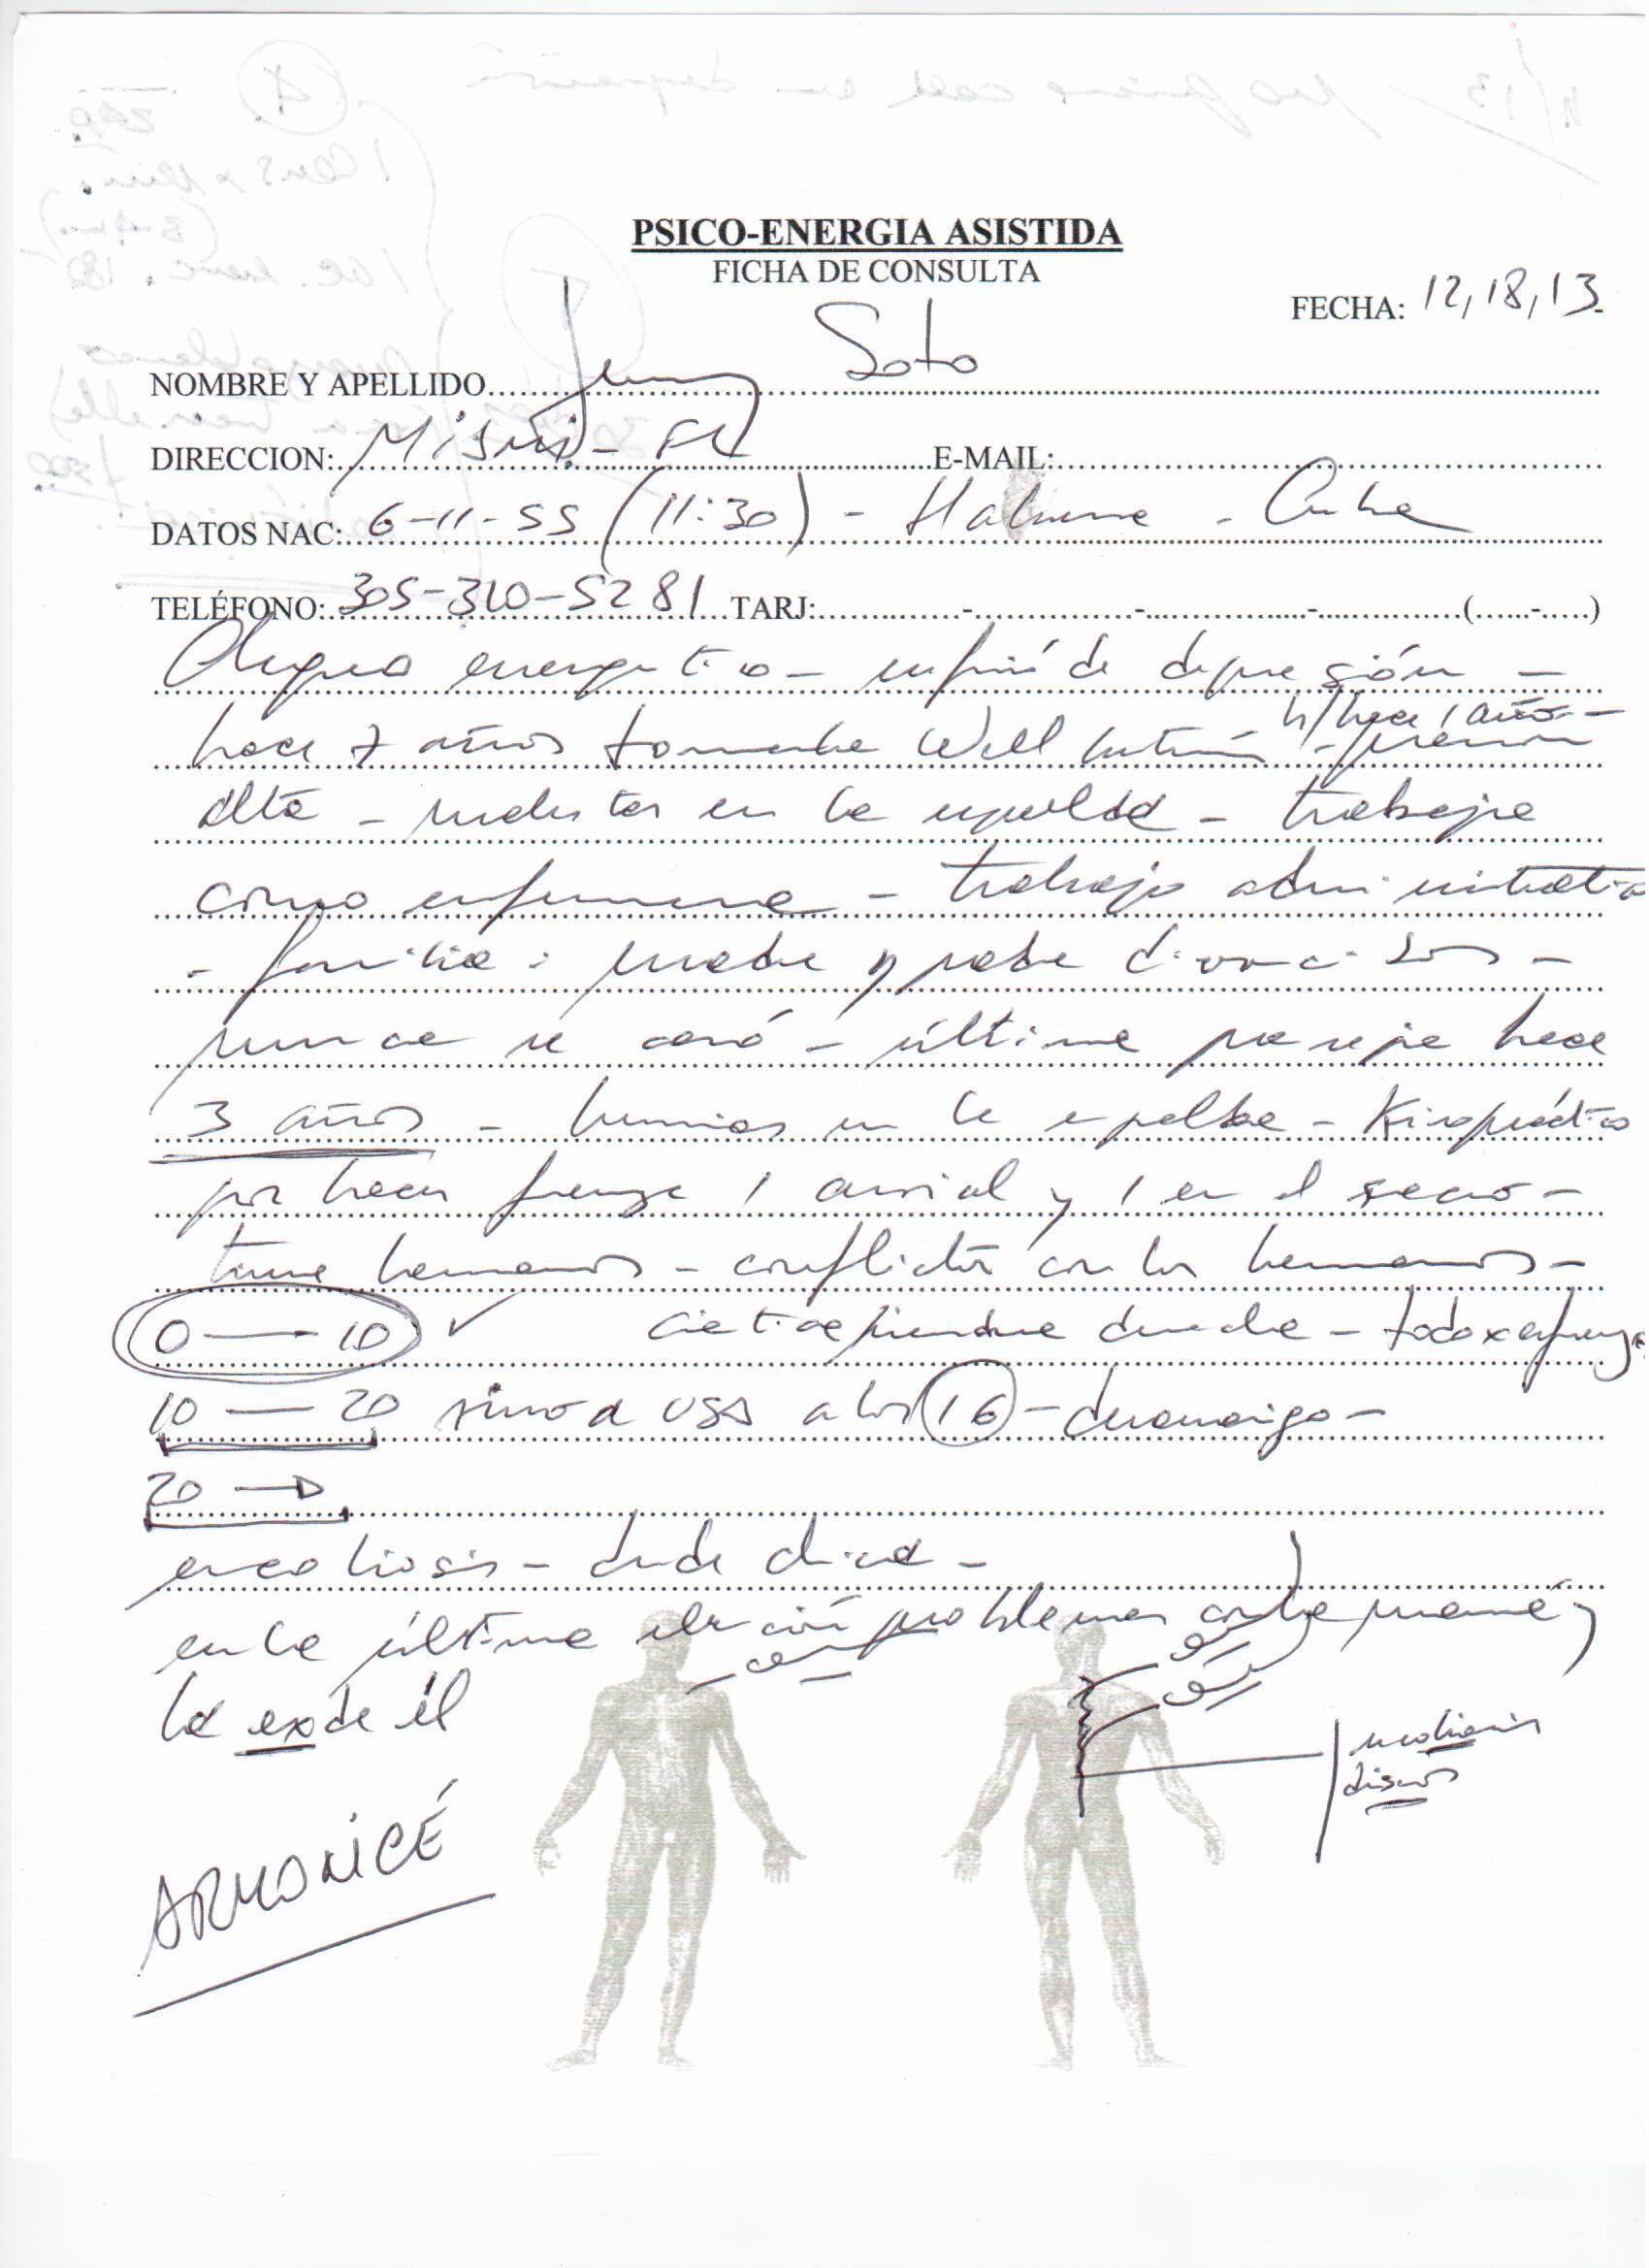 PSICO-ENERGIA ASISTIDA
FICHA DE CONSULTA
FECHA: 12,18,13
NOMBRE Y APELLIDO Soto
DIRECCION: Miami - FL E-MAIL:
DATOS NAC: 6-11-55 (11:30) - Habana - Cuba
TELÉFONO: 305-310-5281 TARJ: - - - ( - )
Chequeo energetico - sufrió de depresión -
h/hace 1 año -
hace 7 años tomaba Wellbutrin - presión
alta - molestas en la espalda - trabaja
como enfermera - trabajo administrativo
- familia : madre y padre divorciados -
nunca se casó - última pareja hace
3 años - hernias en la espalda - Kiropráctico
por hacer fuerza 1 cervical y 1 en el sacro -
tiene hermanos - conflictos con los hermanos -
0 — 10 ✓ ciatica pierna derecha - todo x esfuerzo
10 — 20 vino a USA a los 16 - desarraigo -
20 →
escoliosis - desde chica -
en la última relación problemas con la mamá y
la ex de él
escoliosis
discos
ARMONICÉ